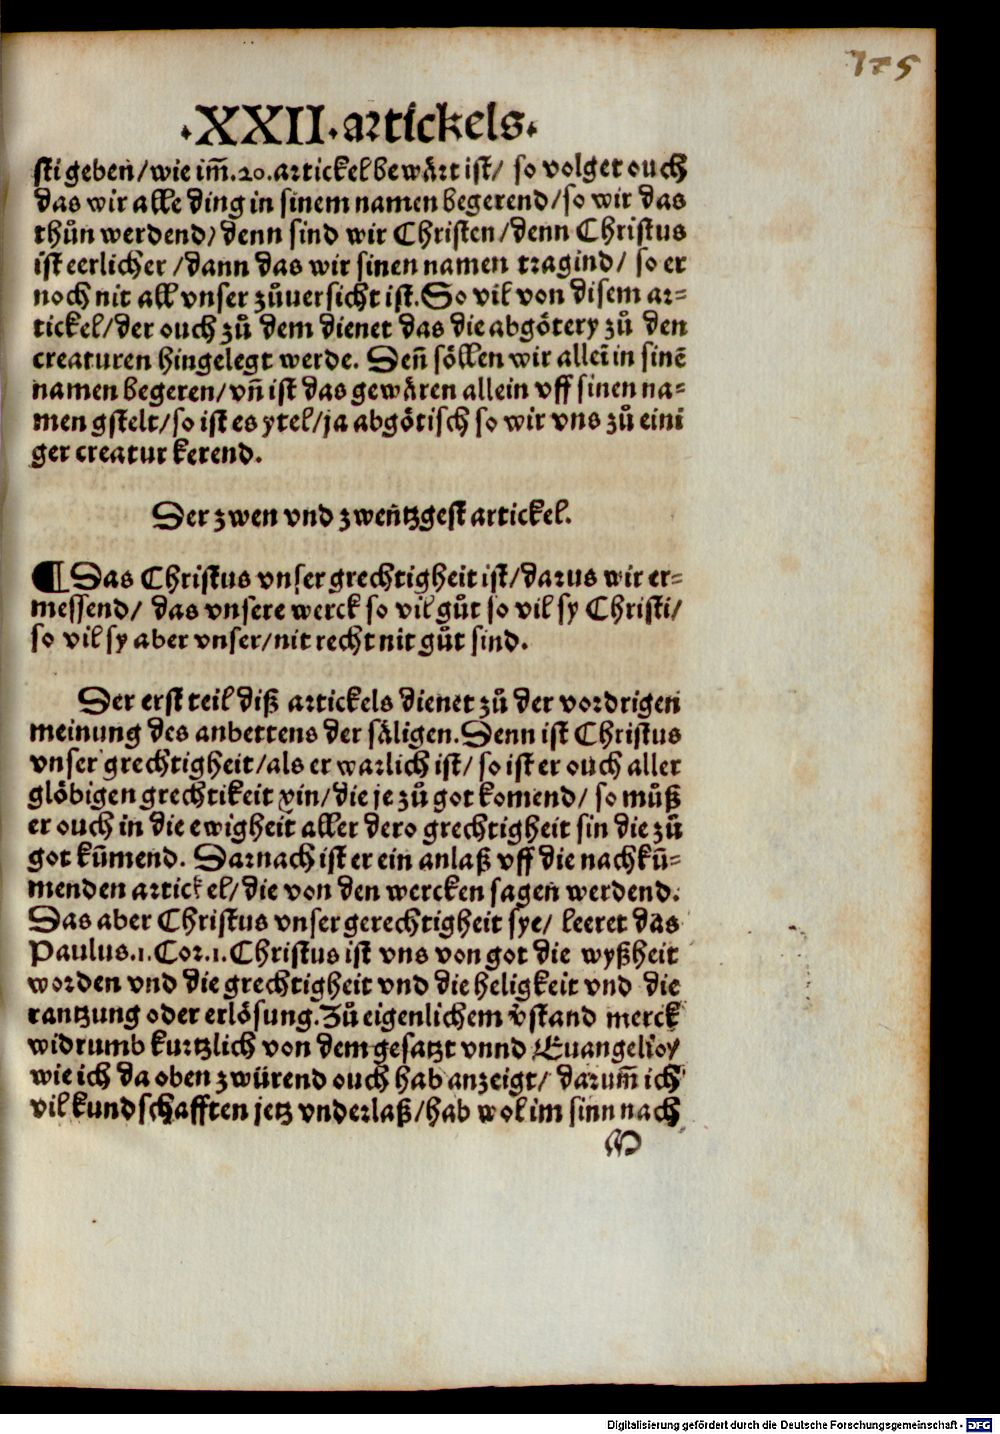 175
·XXII·artickels·
sti geben/wie im̄.20.artickel bewårt ist/ so volget ouch
das wir alle ding in sinem namen begerend/so wir das
thůn werdend/denn sind wir Christen/denn Christus
ist eerlicher/dann das wir sinen namen tragind/ so er
noch nit all vnser zůuersicht ist.So vil von disem ar-
tickel/der ouch zů dem dienet das die abgötery zů den
creaturen hingelegt werde. Den̄ söllen wir alleī in sinē
namen begeren/vn̄ ist das gewären allein vff sinen na-
men gstelt/so ist es ytel/ja abgötisch so wir vns zů eini
ger creatur kerend.
Der zwen vnd zwen̄tzgest artickel.
¶Das Christus vnser grechtigheit ist/darus wir er-
messend/ das vnsere werck so vil gůt so vil sy Christi/
so vil sy aber vnser/nit recht nit gůt sind.
Der erst teil diß artickels dienet zů der vordrigen
meinung des anbettens der säligen.Denn ist Christus
vnser grechtigheit/als er warlich ist/ so ist er ouch aller
glöbigen grechtikeit xin/die je zů got komend/ so můß
er ouch in die ewigheit aller dero grechtigheit sin die zů
got kūmend. Darnach ist er ein anlaß vff die nachkū-
menden artickel/die von den wercken sagen werdend.
Das aber Christus vnser gerechtigheit sye/ leeret das
Paulus.1.Cor.1.Christus ist vns von got die wyßheit
worden vnd die grechtigheit vnd die heligkeit vnd die
rantzung oder erlösung.Zů eigenlichem v̄stand merck
widrumb kurtzlich von dem gesatzt vnnd Euangelio/
wie ich da oben zwürend ouch hab anzeigt/ darum̄ ich
vil kundschafften jetz vnderlaß/hab wol im sinn nach
M
Digitalisierung gefördert durch die Deutsche Forschungsgemeinschaft - DFG